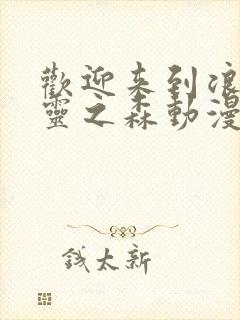 歡迎来到浪
靈之森動漫
钱太新